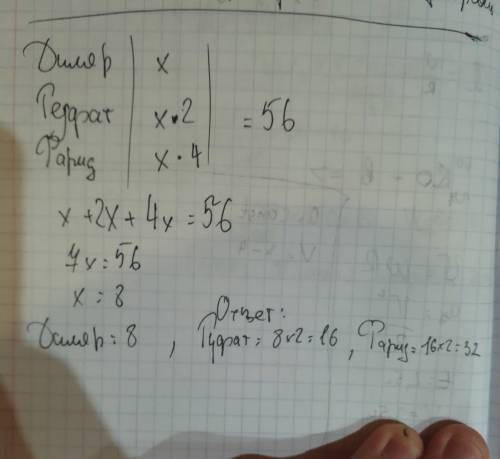 Диляр x
Гедфат x • 2 = 56
Фарид x • 4
x + 2x + 4x = 56
7x = 56
x = 8
Ответ:
Диляр = 8 , Гудфат = 8×2 = 16 , Фарид = 16×2 = 32